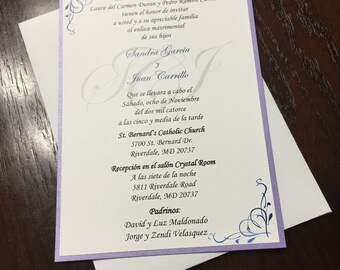 Laura del Carmen Duran y Pedro Ramon
tienen el honor de invitar
a usted y a su apreciable familia
al enlace matrimonial
de sus hijos
Sandra Garcia
y
Juan Carrillo
Que se llevara a cabo el
Sábado, ocho de Noviembre
del dos mil catorce
a las cinco y media de la tarde
St. Bernard's Catholic Church
5700 St. Bernard Dr.
Riverdale, MD 20737
Recepción en el salón Crystal Room
A las siete de la noche
5811 Riverdale Road
Riverdale, MD 20737
Padrinos:
David y Luz Maldonado
Jorge y Zendi Velasquez